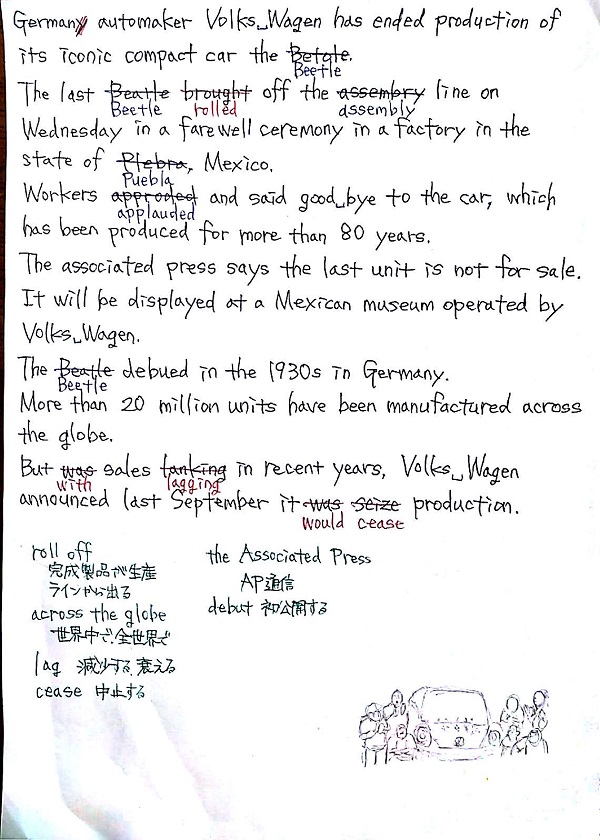 Germany automaker Volks Wagen has ended production of
its iconic compact car the Betale.
Beetle
The last Beatle brought off the assembry line on
Beetle rolled assembly
Wednesday in a farewell ceremony in a factory in the
state of Plebra, Mexico.
Puebla
Workers approded and said good bye to the car, which
applauded
has been produced for more than 80 years.
The associated press says the last unit is not for sale.
It will be displayed at a Mexican museum operated by
Volks Wagen.
The Beatle debued in the 1930s in Germany.
Beetle
More than 20 million units have been manufactured across
the globe.
But was sales tanking in recent years, Volks Wagen
with lagging
announced last September it was seize production.
would cease
roll off
完成製品が生産
ラインから出る
across the globe
世界中で、全世界で
lag 減少する、衰える
cease 中止する
the Associated Press
AP通信
debut 初公開する